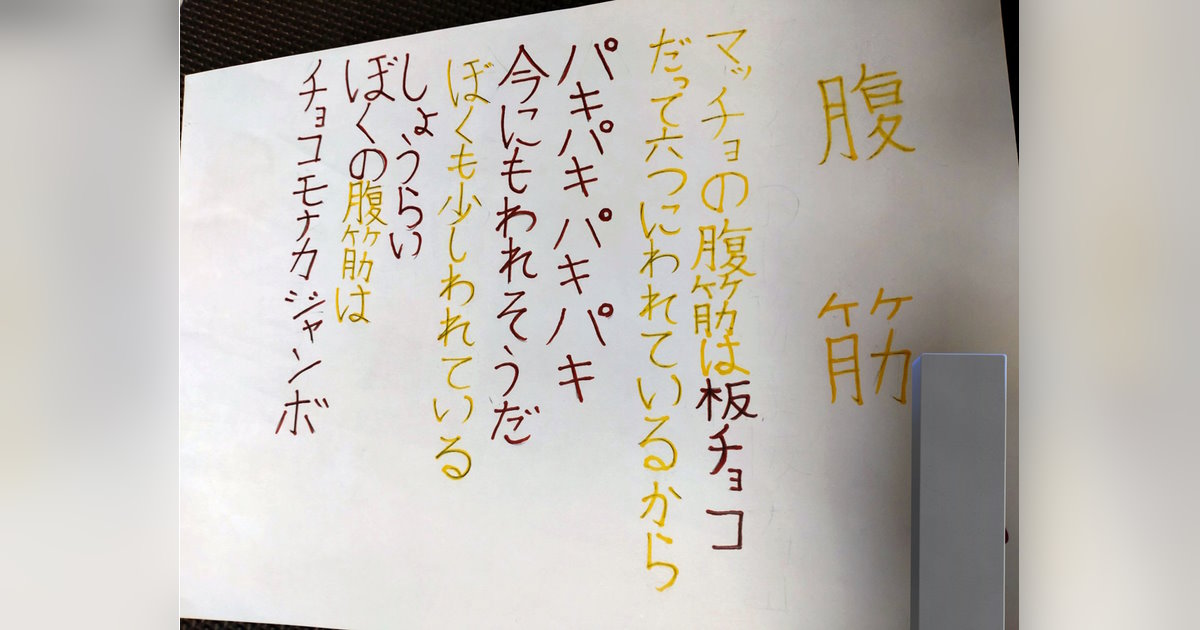 腹筋
マッチョの腹筋は板チョコ
だって六つにわれているから
パキパキパキパキ
今にもわれそうだ
ぼくも少しわれている
しょうらい
ぼくの腹筋は
チョコモナカジャンボ